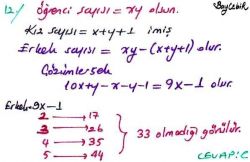 12/ Öğrenci sayısı = xy olsun.
Kız sayısı = x+y+1 imiş
Erkek sayısı = xy-(x+y+1) olur.
Çözümlersek
10x+y-x-y-1 = 9x-1 olur.
Erkek=9x-1
2 → 17
3 → 26
4 → 35
5 → 44
33 olmadığı görülür.
CEVAP:C